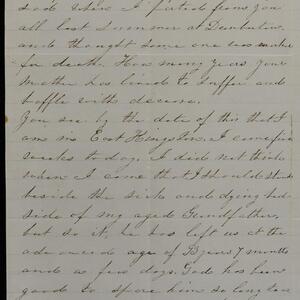 sad when I parted from you
all last summer at Dunbarton
and thought some one was marked
for death. How many years your
Mother has lived to suffer and
baffle with disease.
You see by the date of this that I
am in East Kingston. I came five
weeks to day. I did not think
when I come that I should stand
beside the sick and dying bed
side of my aged Grandfather,
but so it, he has left us at the
advanced age of 7 months
and a few days. God has been
good to spare him so long to us